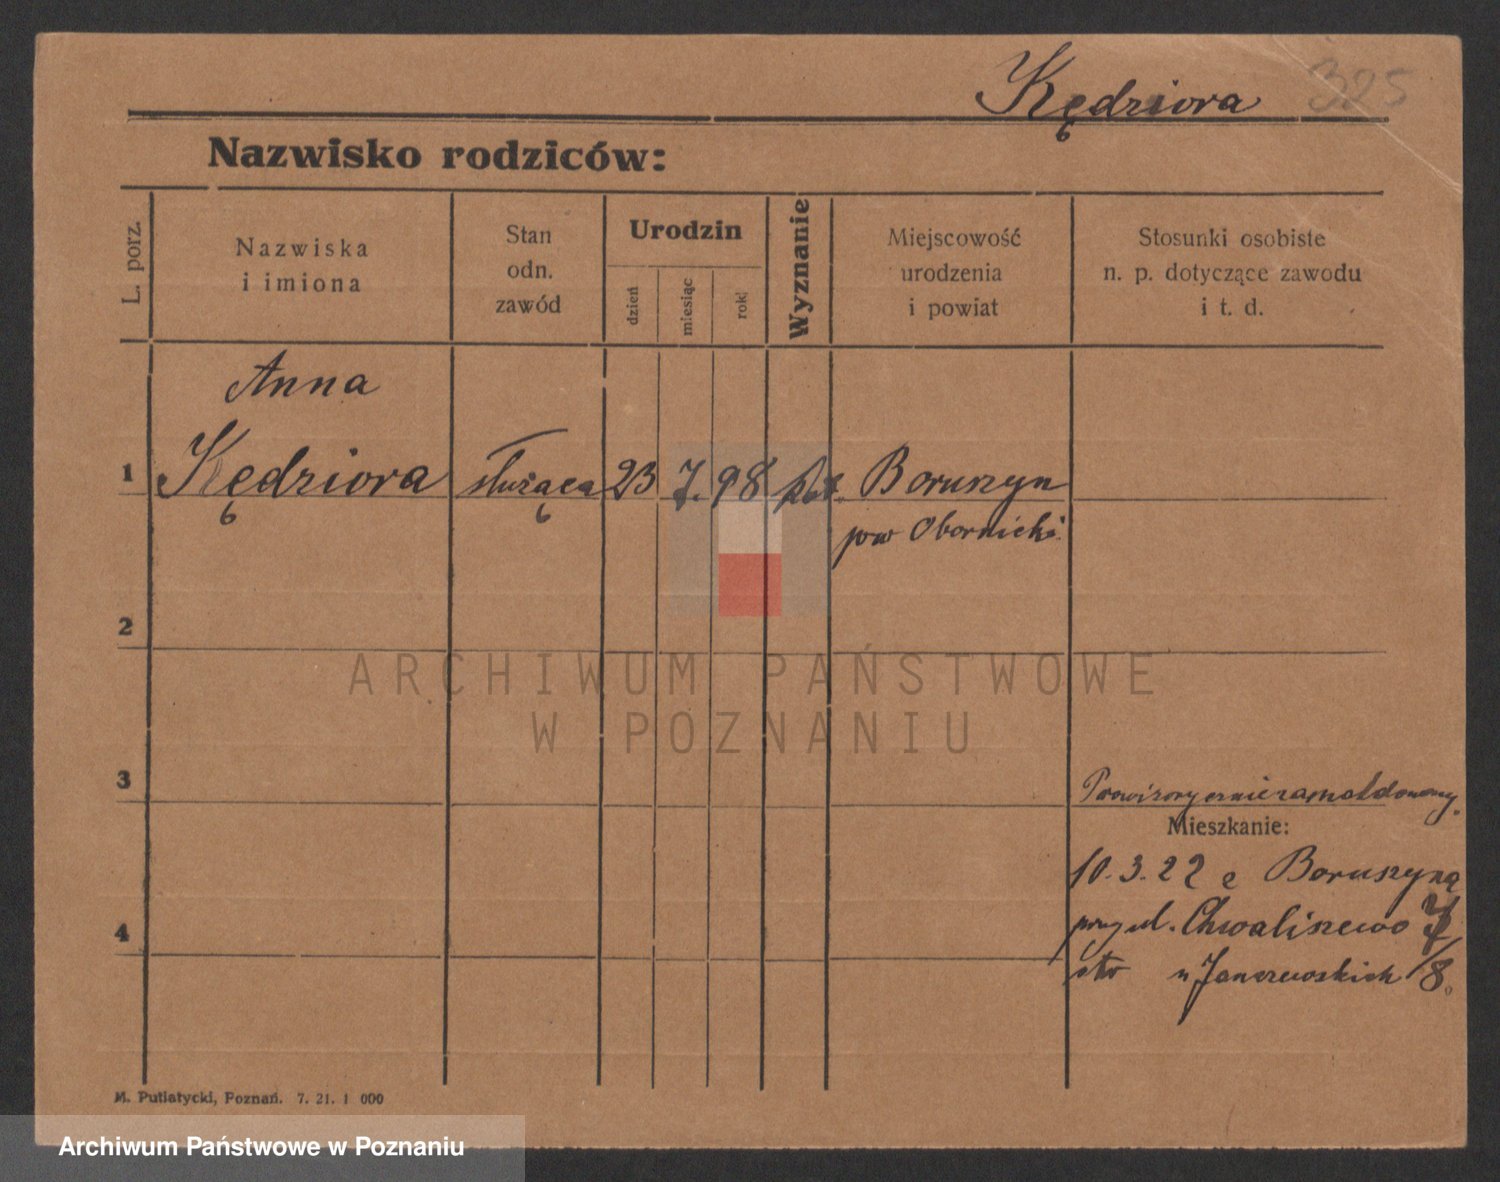 Kędziora 325
Nazwisko rodziców:
L. porz.
Nazwiska
i imiona
Stan
odn.
zawód
Urodzin
dzień
miesiąc
rok
Wyznanie
Miejscowość
urodzenia
i powiat
Stosunki osobiste
n. p. dotyczące zawodu
i t. d.
Anna
1 Kędziora służąca 23 7. 98 kat. Boruszyn
pow Obornicki.
2
3
Prowizorycznie zameldowany.
Mieszkanie:
10.3.22 z Boruszyna
przy ul. Chwaliszewo
4
u Janczewskich 8.
M. Putiatycki, Poznań. 7. 21. 1 000
ARCHIWUM PAŃSTWOWE
W POZNANIU
Archiwum Państwowe w Poznaniu